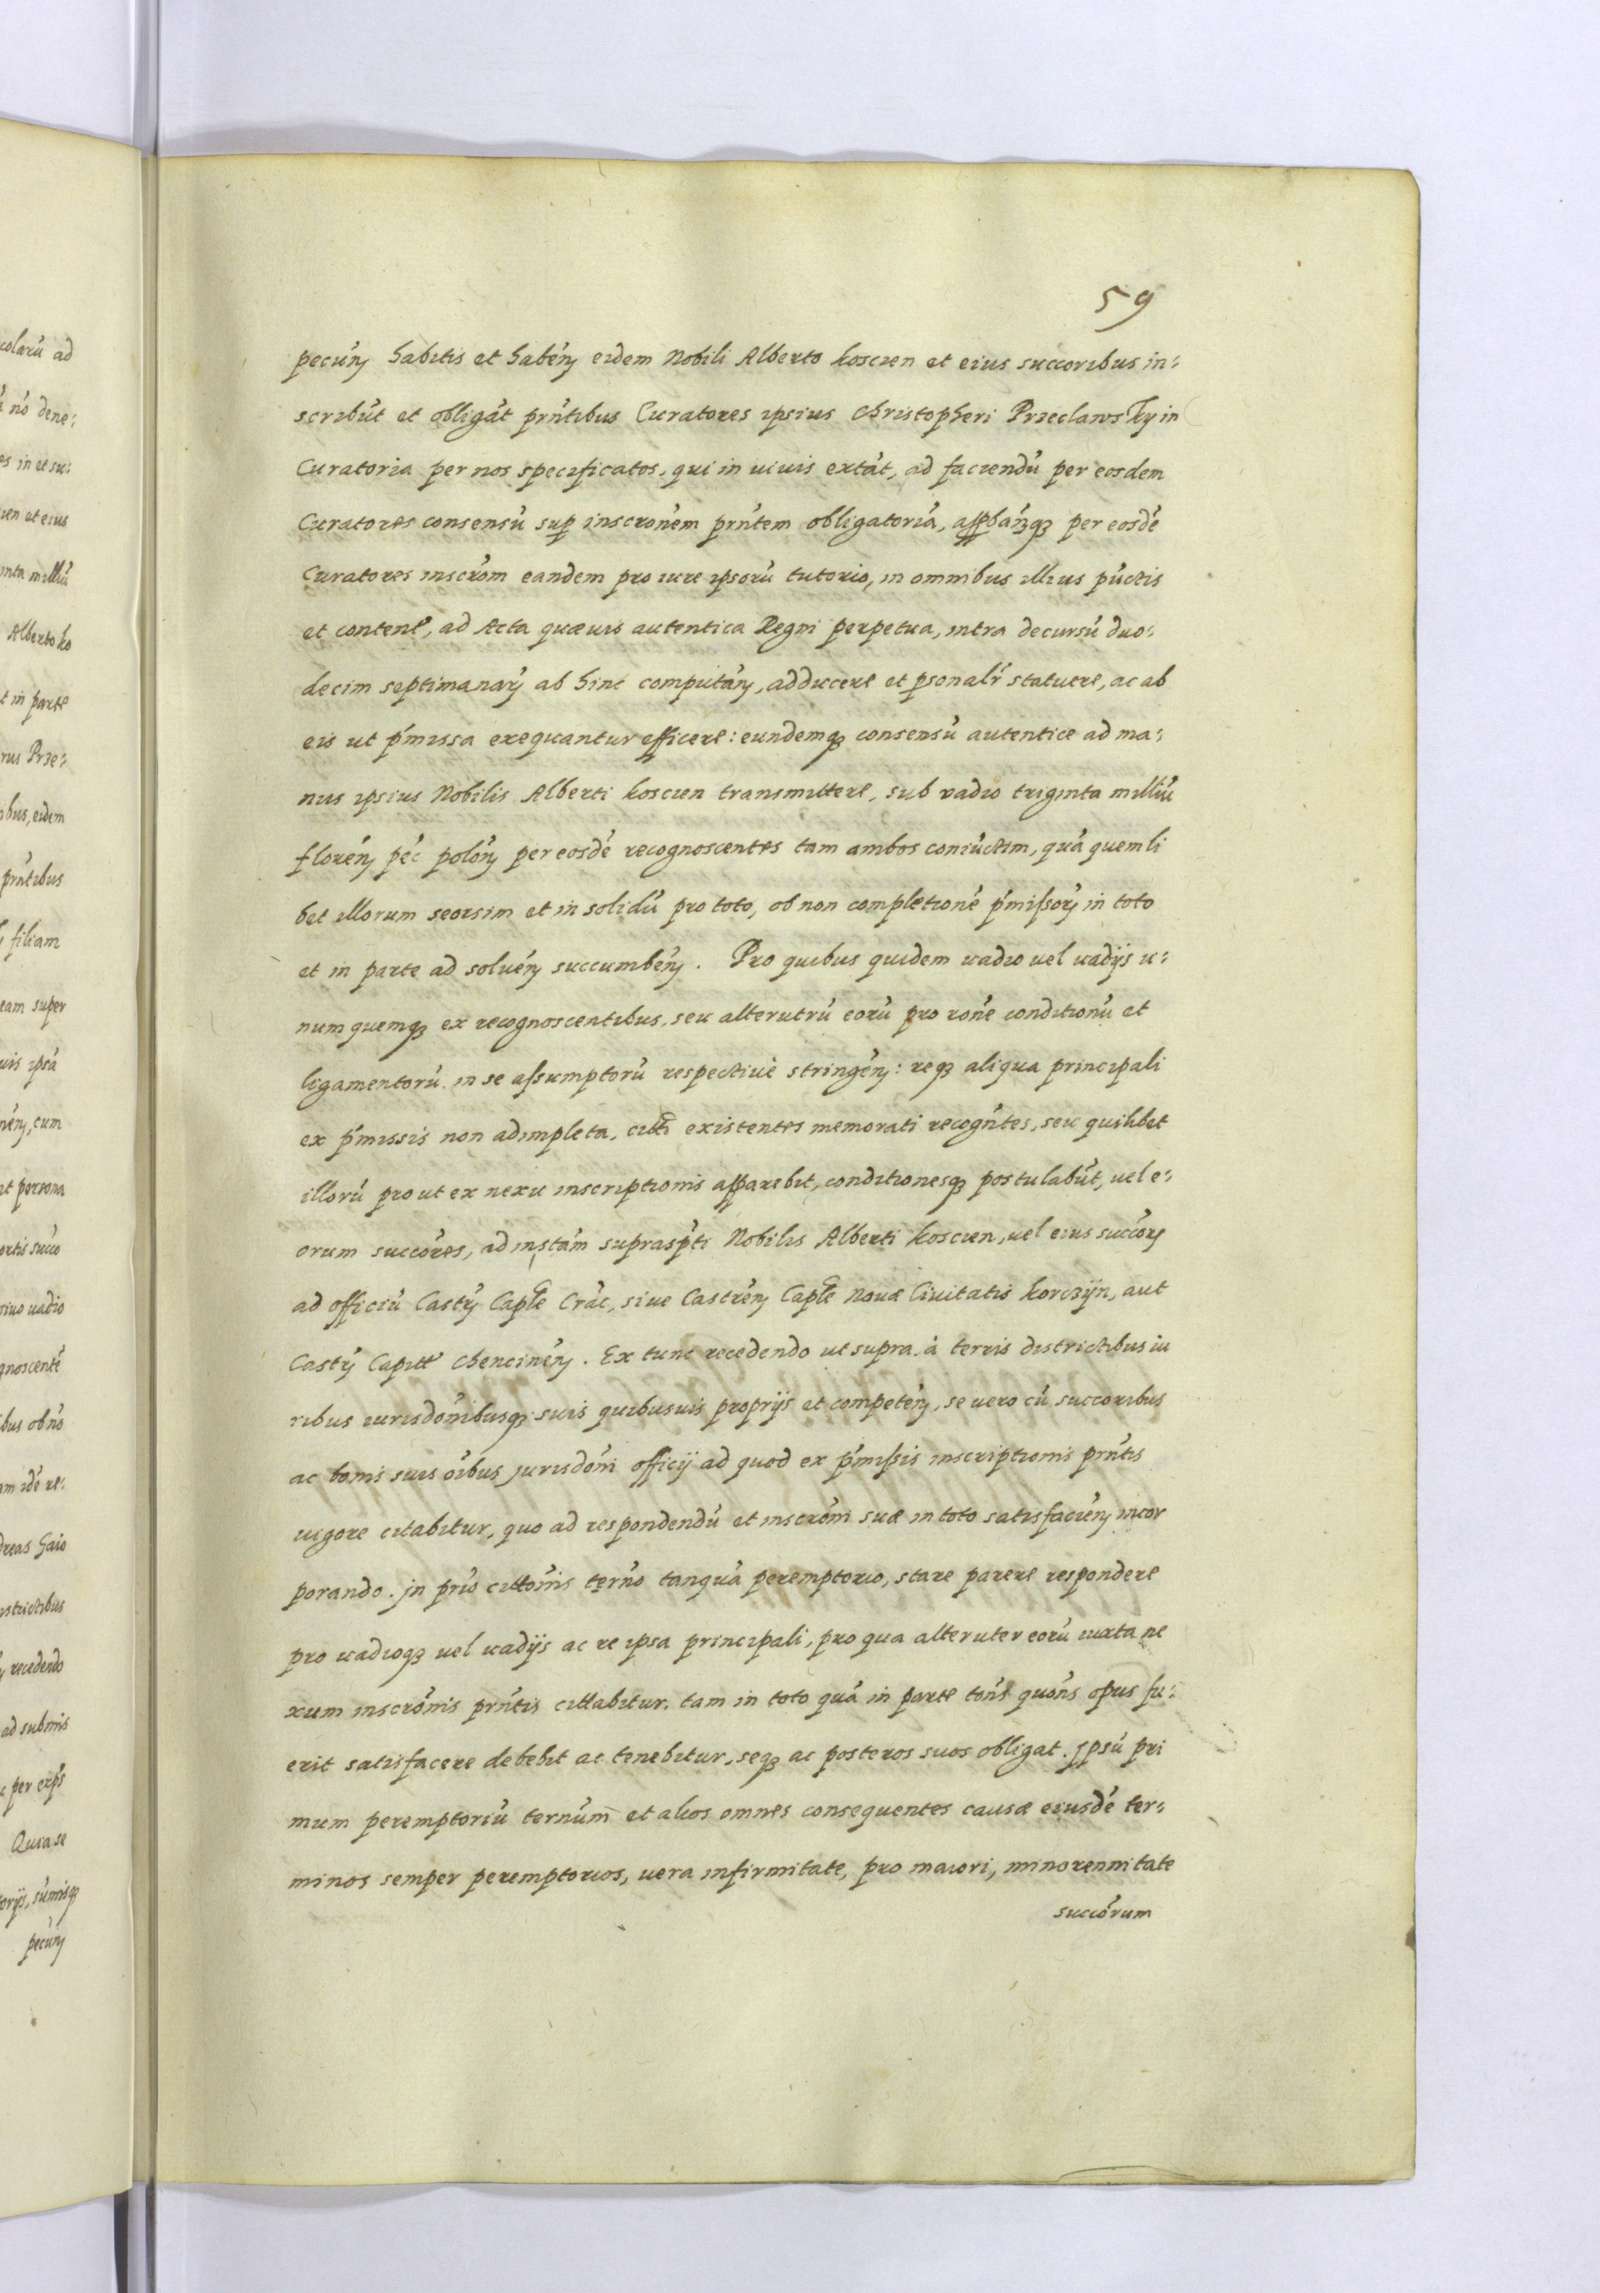 59
pecún habitis et habén eidem Nobili Alberto koscien et eius succoribus in:
scribút et obligát prńtibus Curatores ipsius Christopheri Przeclawsky in
Curatoria per nos specificatos, qui in uiuis extát, ad faciendú per eosdem
Curatores consensú sup inscronem prńtem obligatoriá, appbánqz per eosdé
Curatores inscrom eandem pro iure ipsorú tutorio, in omnibus illius púctis
et content, ad Acta quæuis autentica Regni perpetua, intra decursú duo:
decim septimanarz ab hinc compután, adducere et psonalr statuere, ac ab
eis ut pmissa exequantur efficere: eundemqz consensú autentice ad ma:
nus ipsius Nobilis Alberti koscien transmittere, sub vadio triginta milliú
florén péc polón per eosdé recognoscentes tam ambos coniúctim, quá quemli
bet illorum seorsim et in solidú pro toto, ob non completioné pmissorz in toto
et in parte ad soluén succumbén. Pro quibus quidem uadio uel uadijs u:
num quemqz ex recognoscentibus, seu alterutrú eorú pro rone conditionú et
ligamentorú in se assumptorú respectiuè stringén: reqz aliqua principali
ex pmissis non adimpleta, citti existentes memorati recogntes, seu quilibet
illorú prout ex nexu inscriptionis apparebit, conditionesqz postulabút, uel e:
orum succóres, ad instám supraspti Nobilis Alberti koscien, uel eius succorz
ad officiú Castr Caple Crác, siue Castrén Caple Nouæ Ciuitatis korczijn, aut
Castr Capitt Chencinén. Ex tunc recedendo ut supra à terris districtibus iu
ribus iurisdonibusqz suis quibusuis proprijs et competén, se uero cú succoribus
ac bonis suis oíbus jurisdoni officij ad quod ex pmissis inscriptionis prńtis
uigore citabitur, quo ad respondendú et inscroni suæ in toto satisfacién incor
porando. jn prio cittonis terno tanquá peremptorio, stare parere respondere
pro uadioqz uel uadijs ac re ipsa principali, pro qua alteruter eorú iuxta ne
xum inscronis prńtis cittabitur, tam in toto quá in parte tons quons opus fu:
erit satisfacere debebit ac tenebitur, seqz ac posteros suos obligat. jpsú pri
mum peremptoriú ternum et alios omnes consequentes causæ eiusdé ter:
minos semper peremptorios, uera infirmitate, pro maiori, minorennitate
succórum